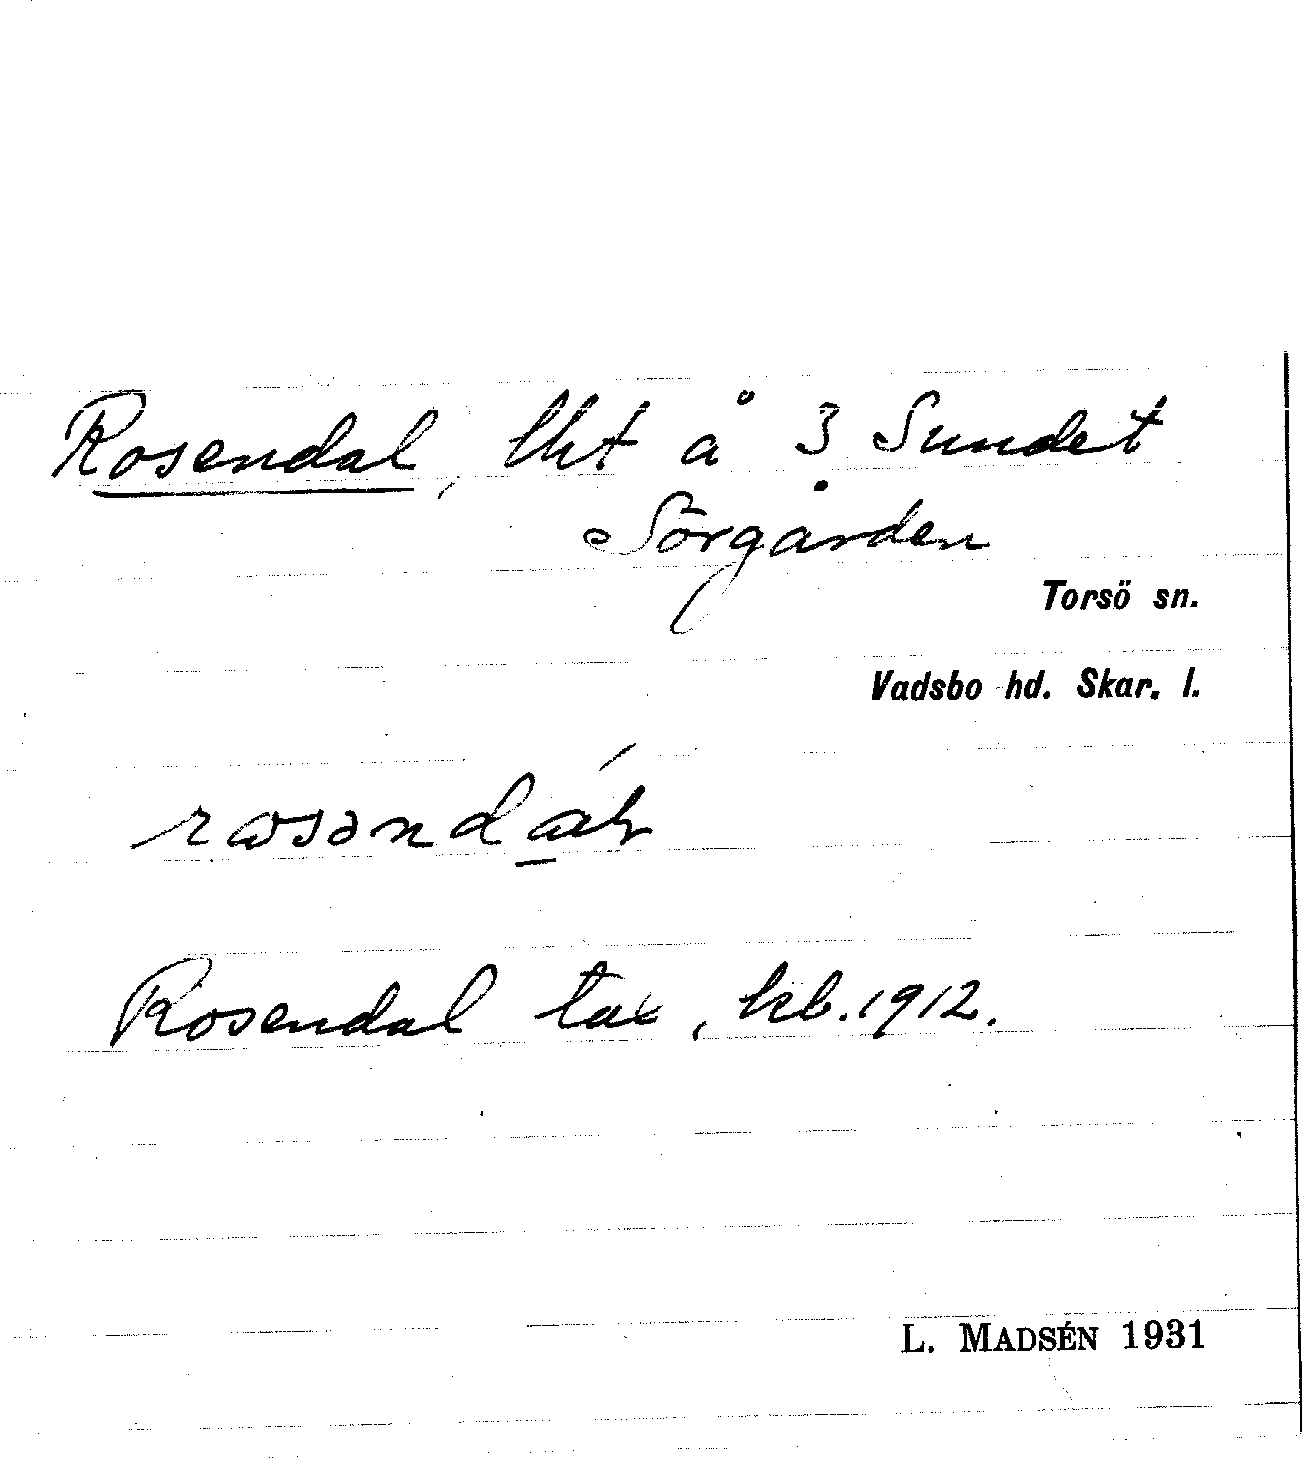 Rosendal, lht å 3 Sundet
Sörgården
Torsö sn.
Vadsbo hd. Skar. l.
Rosendal tax, kb. 1912.
L. MADSÉN 1931